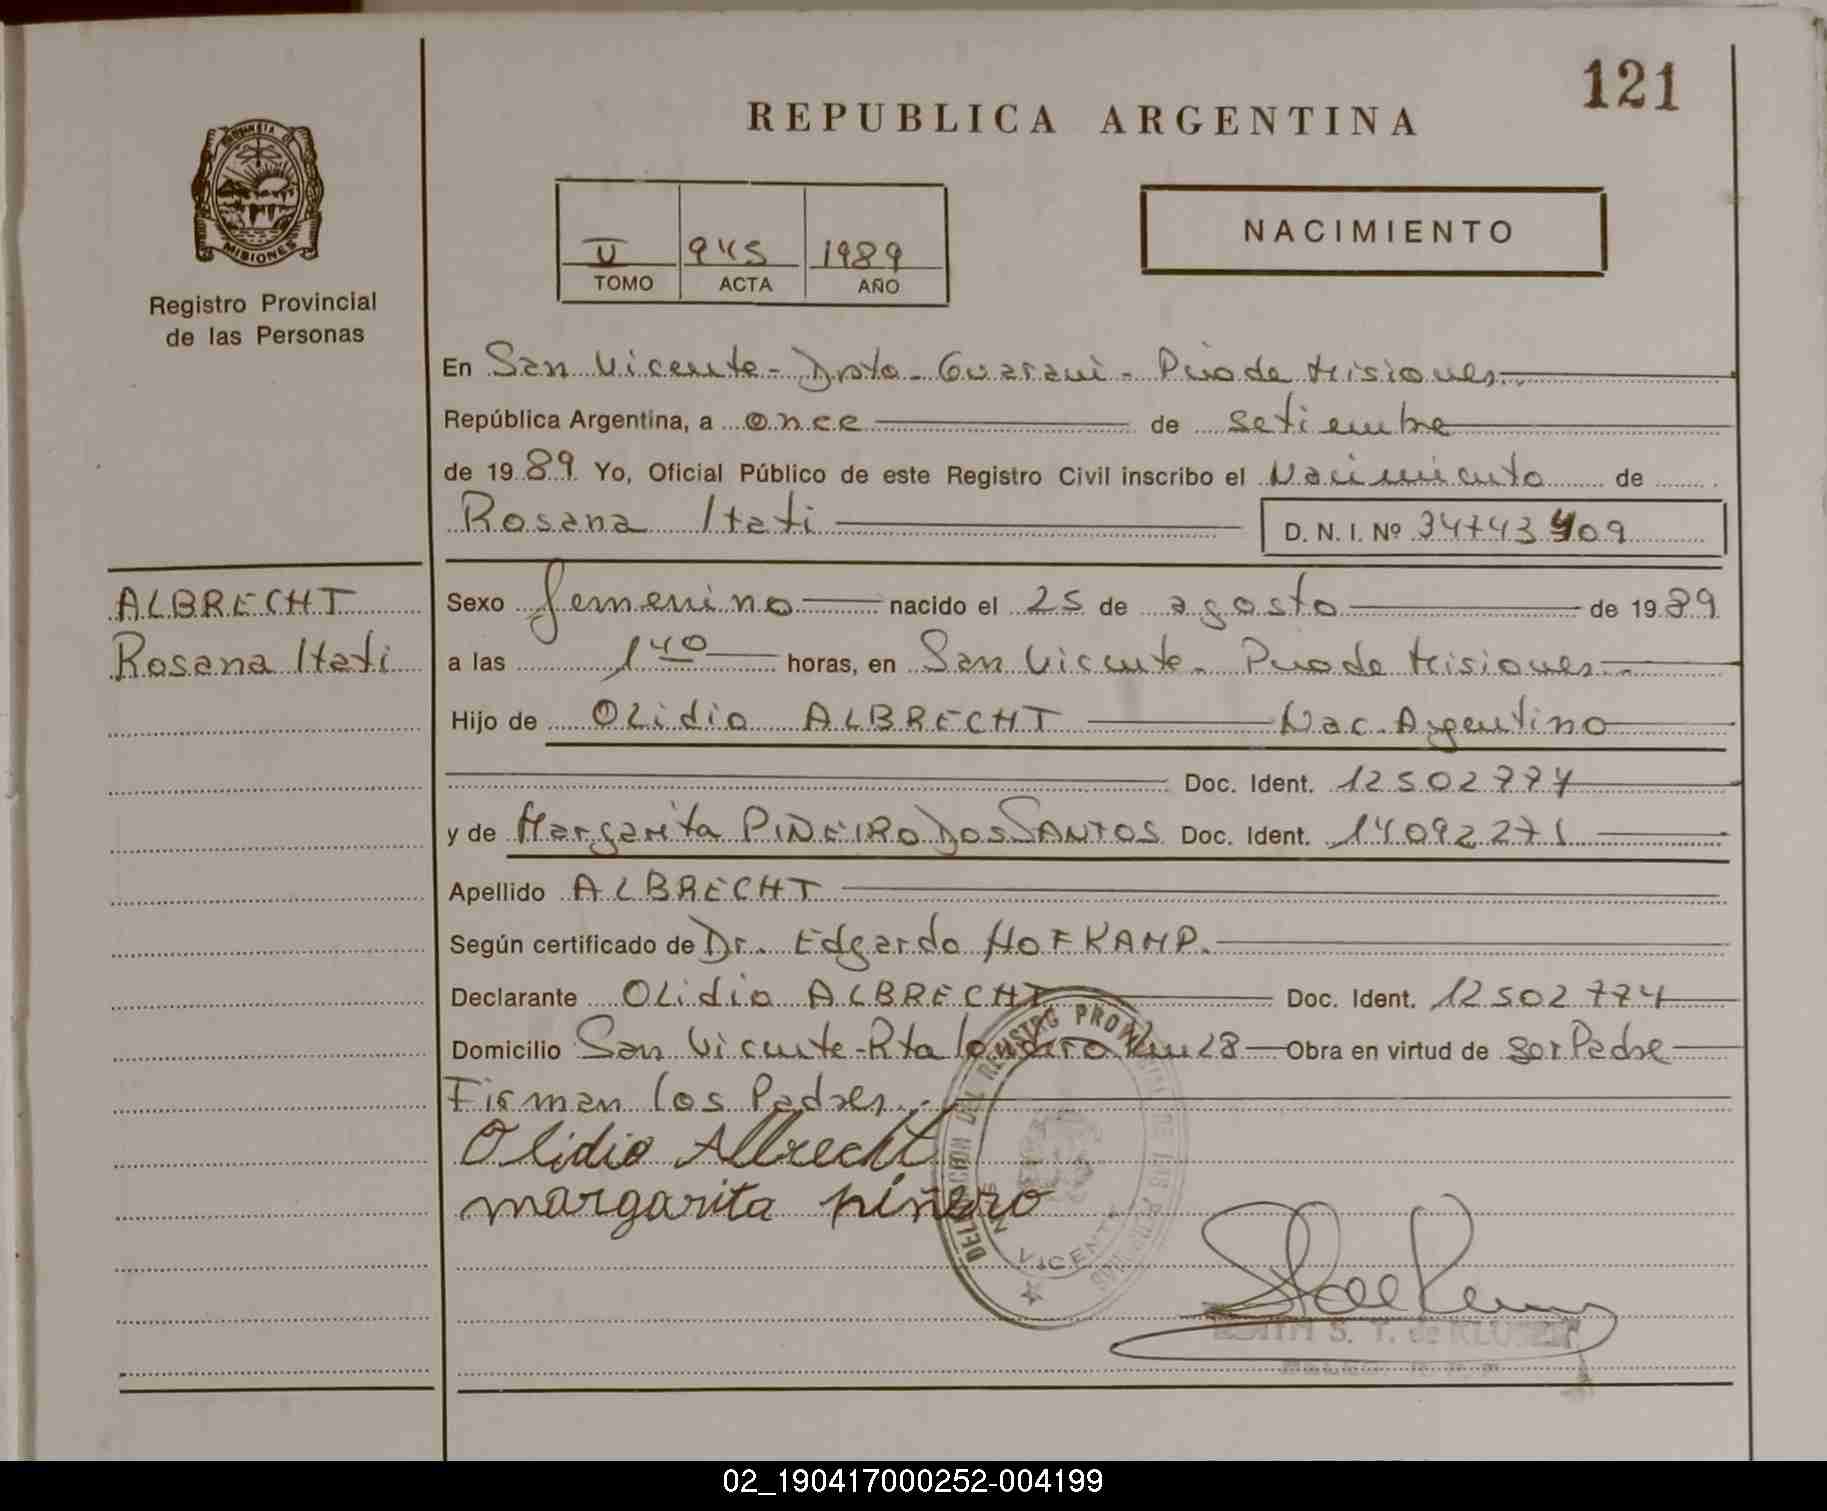 121
REPUBLICA ARGENTINA
PROVINCIA D
MISIONES
Registro Provincial
de las Personas
U 945 1989
TOMO ACTA AÑO
NACIMIENTO
En San Vicente - Dpto - Guarani - Pvia de Misiones
República Argentina, a once de setiembre
de 1989 Yo, Oficial Público de este Registro Civil inscribo el Nacimiento de
Rosana Itati D. N. I. Nº 34743409
ALBRECHT
Rosana Itati
Sexo femenino nacido el 25 de agosto de 1989
a las 1 40 horas, en San Vicente - Pvia de Misiones
Hijo de Olidio ALBRECHT Nac. Argentino
Doc. Ident. 12502774
y de Margarita PIÑEIRO DOS SANTOS Doc. Ident. 14092271
Apellido ALBRECHT
Según certificado de Dr. Edgardo HOFKAMP.
Declarante Olidio ALBRECHT Doc. Ident. 12502774
Domicilio San Vicente - Rta Km 28 Obra en virtud de ser Padre
Firman los Padres
Olidio Albrecht
margarita piñero
DELEGACION DEL REGISTRO PROVINCIAL DE LAS PERSONAS
VICENTE
S. T. de
02_190417000252-004199